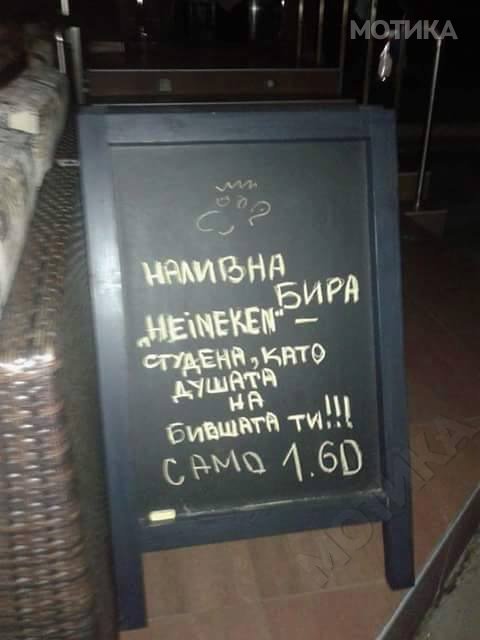 МОТИКА
НАЛИВНА
БИРА
„HEiNEKEN" –
СТУДЕНА, КАТО
ДУШАТА
НА
БИВШАТА ТИ!!!
САМО 1.60
МОТИКА